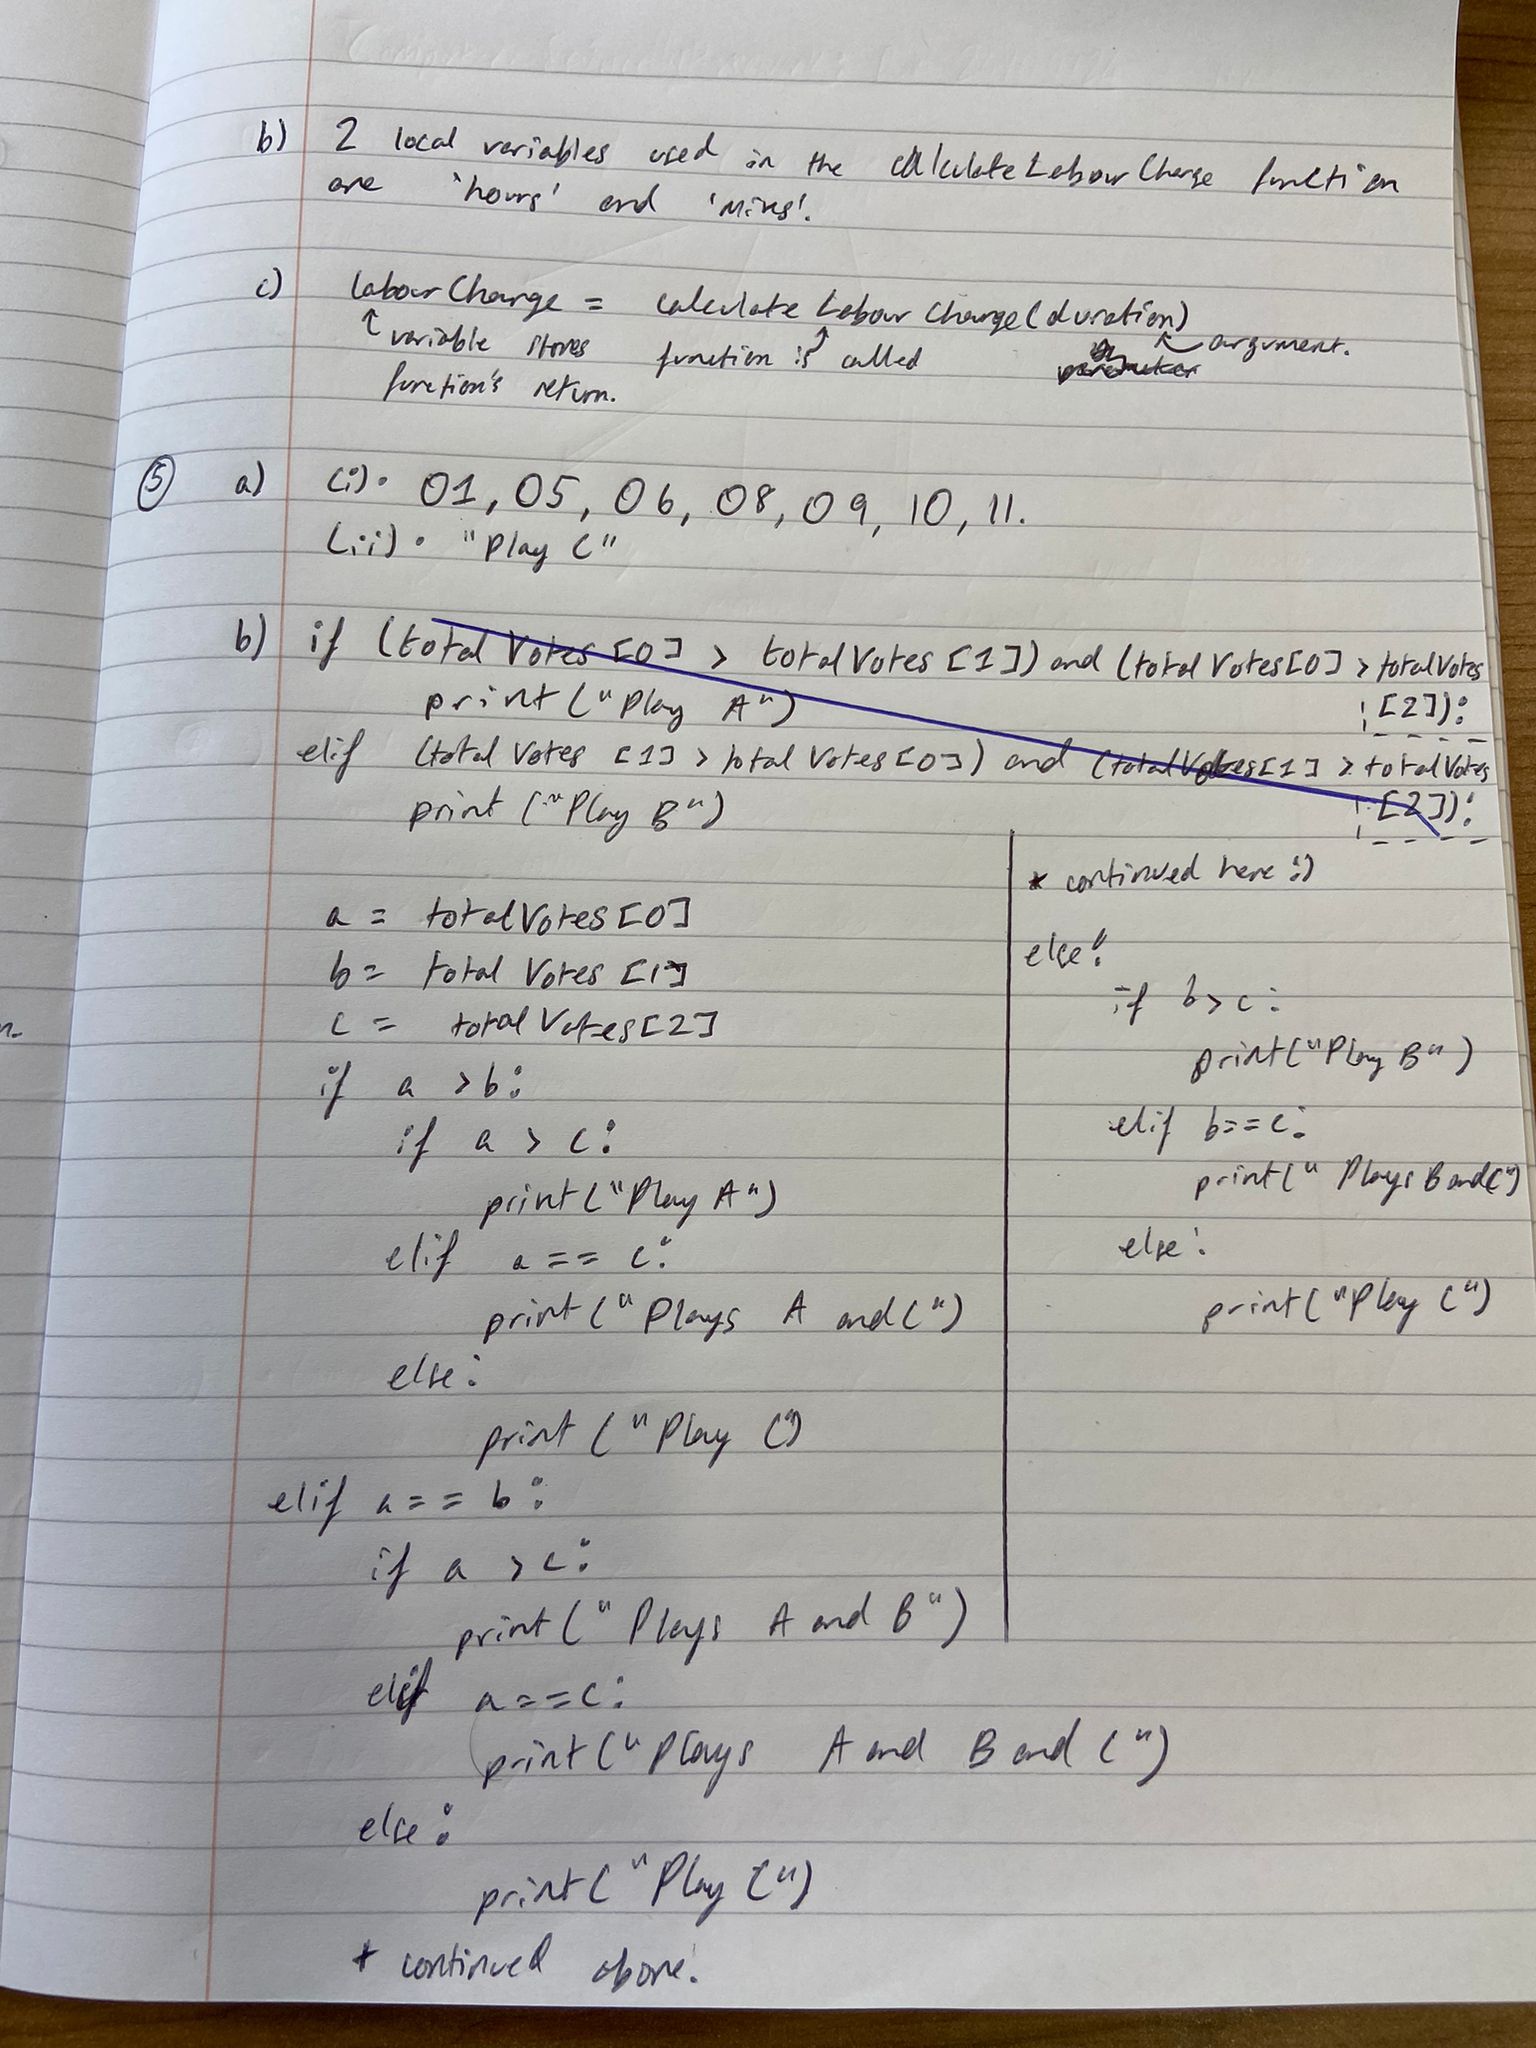 b) 2 local variables used in the calculateLabourCharge function
are 'hours' and 'mins'.
c) labourCharge = calculateLabourCharge(duration)
↑ variable stores function is ↑ called ↖ argument.
function's return.
⑤ a) (i)• 01, 05, 06, 08, 09, 10, 11.
(ii)• "Play C"
b) if (totalVotes[0] > totalVotes[1]) and (totalVotes[0] > totalVotes
[2]):
print("Play A")
elif (totalVotes[1] > totalVotes[0]) and (totalVotes[1] > totalVotes
[2]):
print("Play B")
a = totalVotes[0]
b = totalVotes[1]
c = totalVotes[2]
if a > b:
if a > c:
print("Play A")
elif a == c:
print("Plays A and C")
else:
print("Play C")
elif a == b:
if a > c:
print("Plays A and B")
elif a == c:
print("Plays A and B and C")
else:
print("Play C")
* continued above.
* continued here :)
else:
if b > c:
print("Play B")
elif b == c:
print("Plays B and C")
else:
print("Play C")